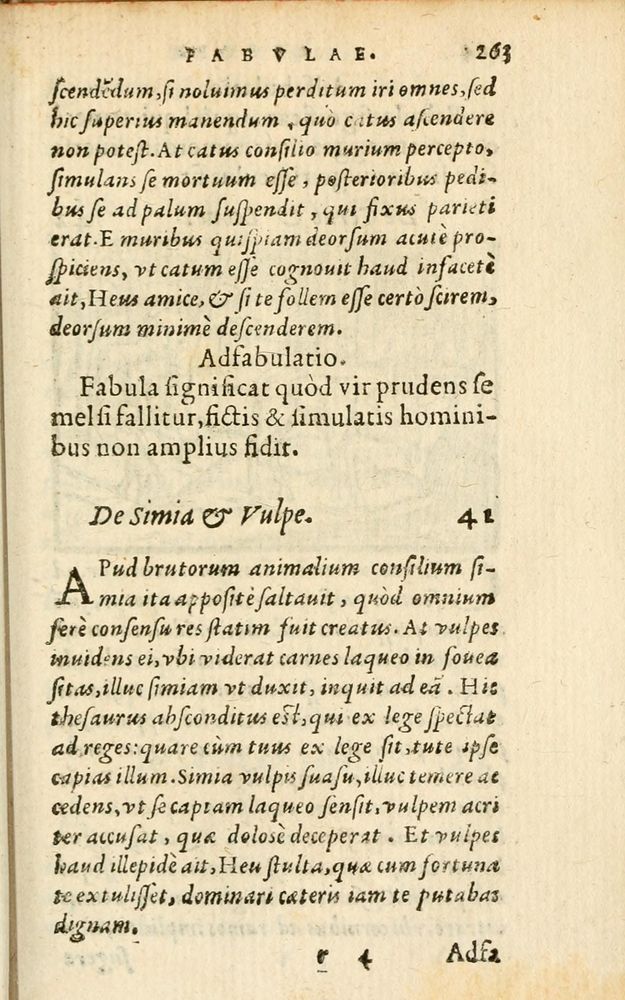 FABVLAE. 263
ſcendēdum, ſi noluimus perditum iri omnes, ſed
hic ſuperius manendum, quò catus aſcendere
non poteſt. At catus conſilio murium percepto,
ſimulans ſe mortuum eſſe, poſterioribus pedi-
bus ſe ad palum ſuſpendit, qui fixus parieti
erat. E muribus quiſpiam deorſum acutè pro-
ſpiciens, vt catum eſſe cognouit haud infacetè
ait, Heus amice, & ſi te follem eſſe certò ſcirem,
deorſum minimè deſcenderem.
Adfabulatio.
Fabula ſignificat quòd vir prudens ſe
mel ſi fallitur, fictis & ſimulatis homini-
bus non amplius fidit.
De Simia & Vulpe. 41
APud brutorum animalium conſilium ſi-
mia ita appoſitè ſaltauit, quòd omnium
ferè conſenſu res ſtatim fuit creatus. At vulpes
inuidens ei, vbi viderat carnes laqueo in fouea
ſitas, illuc ſimiam vt duxit, inquit ad eā. Hic
theſaurus abſconditus eſt, qui ex lege ſpectat
ad reges: quare cùm tuus ex lege ſit, tute ipſe
capias illum. Simia vulpis ſuaſu, illuc temere ac
cedens, vt ſe captam laqueo ſenſit, vulpem acri
ter accuſat, quæ doloſè deceperat. Et vulpes
haud illepidè ait, Heu ſtulta, quæ cum fortuna
te extuliſſet, dominari cæteris iam te putabas
dignam.
r 4 Adfa